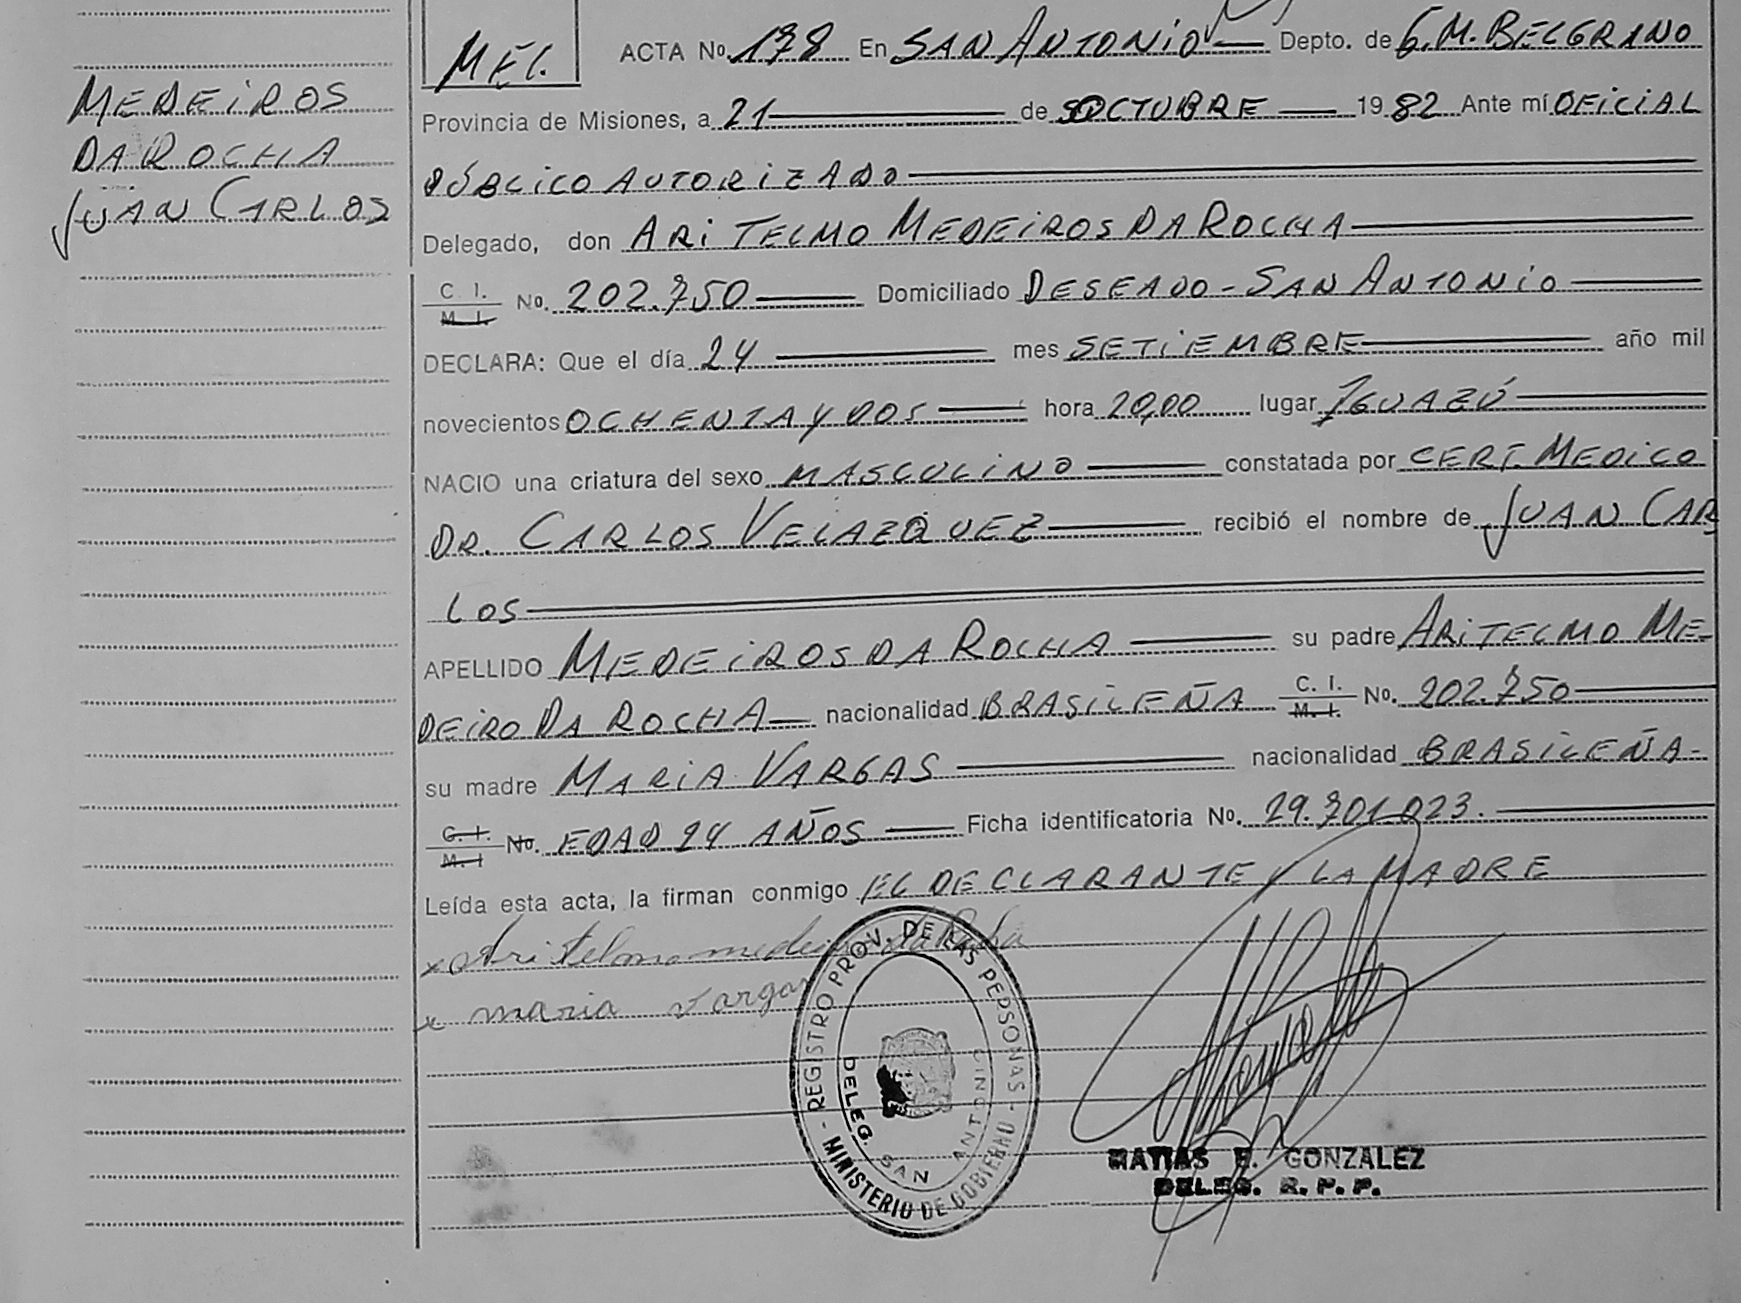 MEDEIROS
DA ROCHA
JUAN CARLOS
MEI.
ACTA No. 178 En SAN ANTONIO Depto. de G.M. BELGRANO
Provincia de Misiones, a 21 de OCTUBRE 1982 Ante mí OFICIAL
PÚBLICO AUTORIZADO
Delegado, don ARI TELMO MEDEIROS DA ROCHA
C. I. M. I. No. 202.750 Domiciliado DESEADO - SAN ANTONIO
DECLARA: Que el día 24 mes SETIEMBRE año mil
novecientos OCHENTA Y DOS hora 20,00 lugar IGUAZÚ
NACIO una criatura del sexo MASCULINO constatada por CERT. MEDICO
DR. CARLOS VELAZQUEZ recibió el nombre de JUAN CAR
LOS
APELLIDO MEDEIROS DA ROCHA su padre ARI TELMO ME-
DEIRO DA ROCHA nacionalidad BRASILEÑA C. I. M. I. No. 202.750
su madre MARIA VARGAS nacionalidad BRASILEÑA-
C. I. M. I No. EDAD 24 AÑOS Ficha identificatoria No. 29.701.023.
Leída esta acta, la firman conmigo EL DECLARANTE Y LA MADRE
x Ari telmo medeiros da Rocha
x maria Vargas
REGISTRO PROV. DE LAS PERSONAS - MINISTERIO DE GOBIERNO -
DELEG. SAN ANTONIO
MATIAS E. GONZALEZ
DELEG. R. P. P.